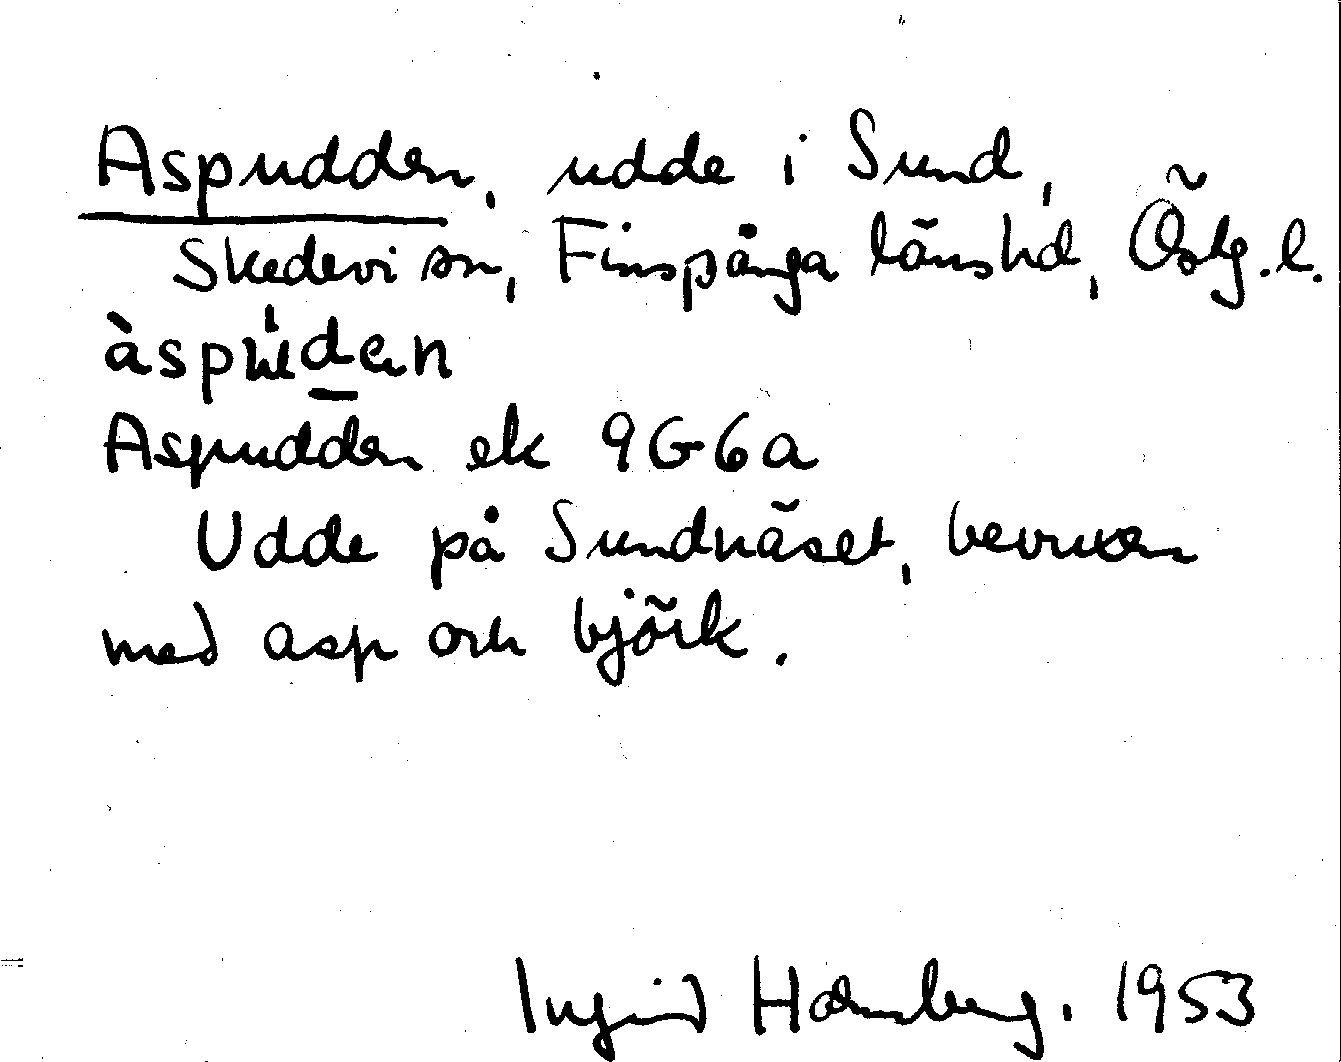 Aspudden, udde i Sund,
Skedevi sn, Finspånga länshd, Östg.l.
àspu̍d̲en
Aspudden ek 9G6a
Udde på Sundnäset, bevuxen
med asp och björk.
Ingrid Holmberg. 1953